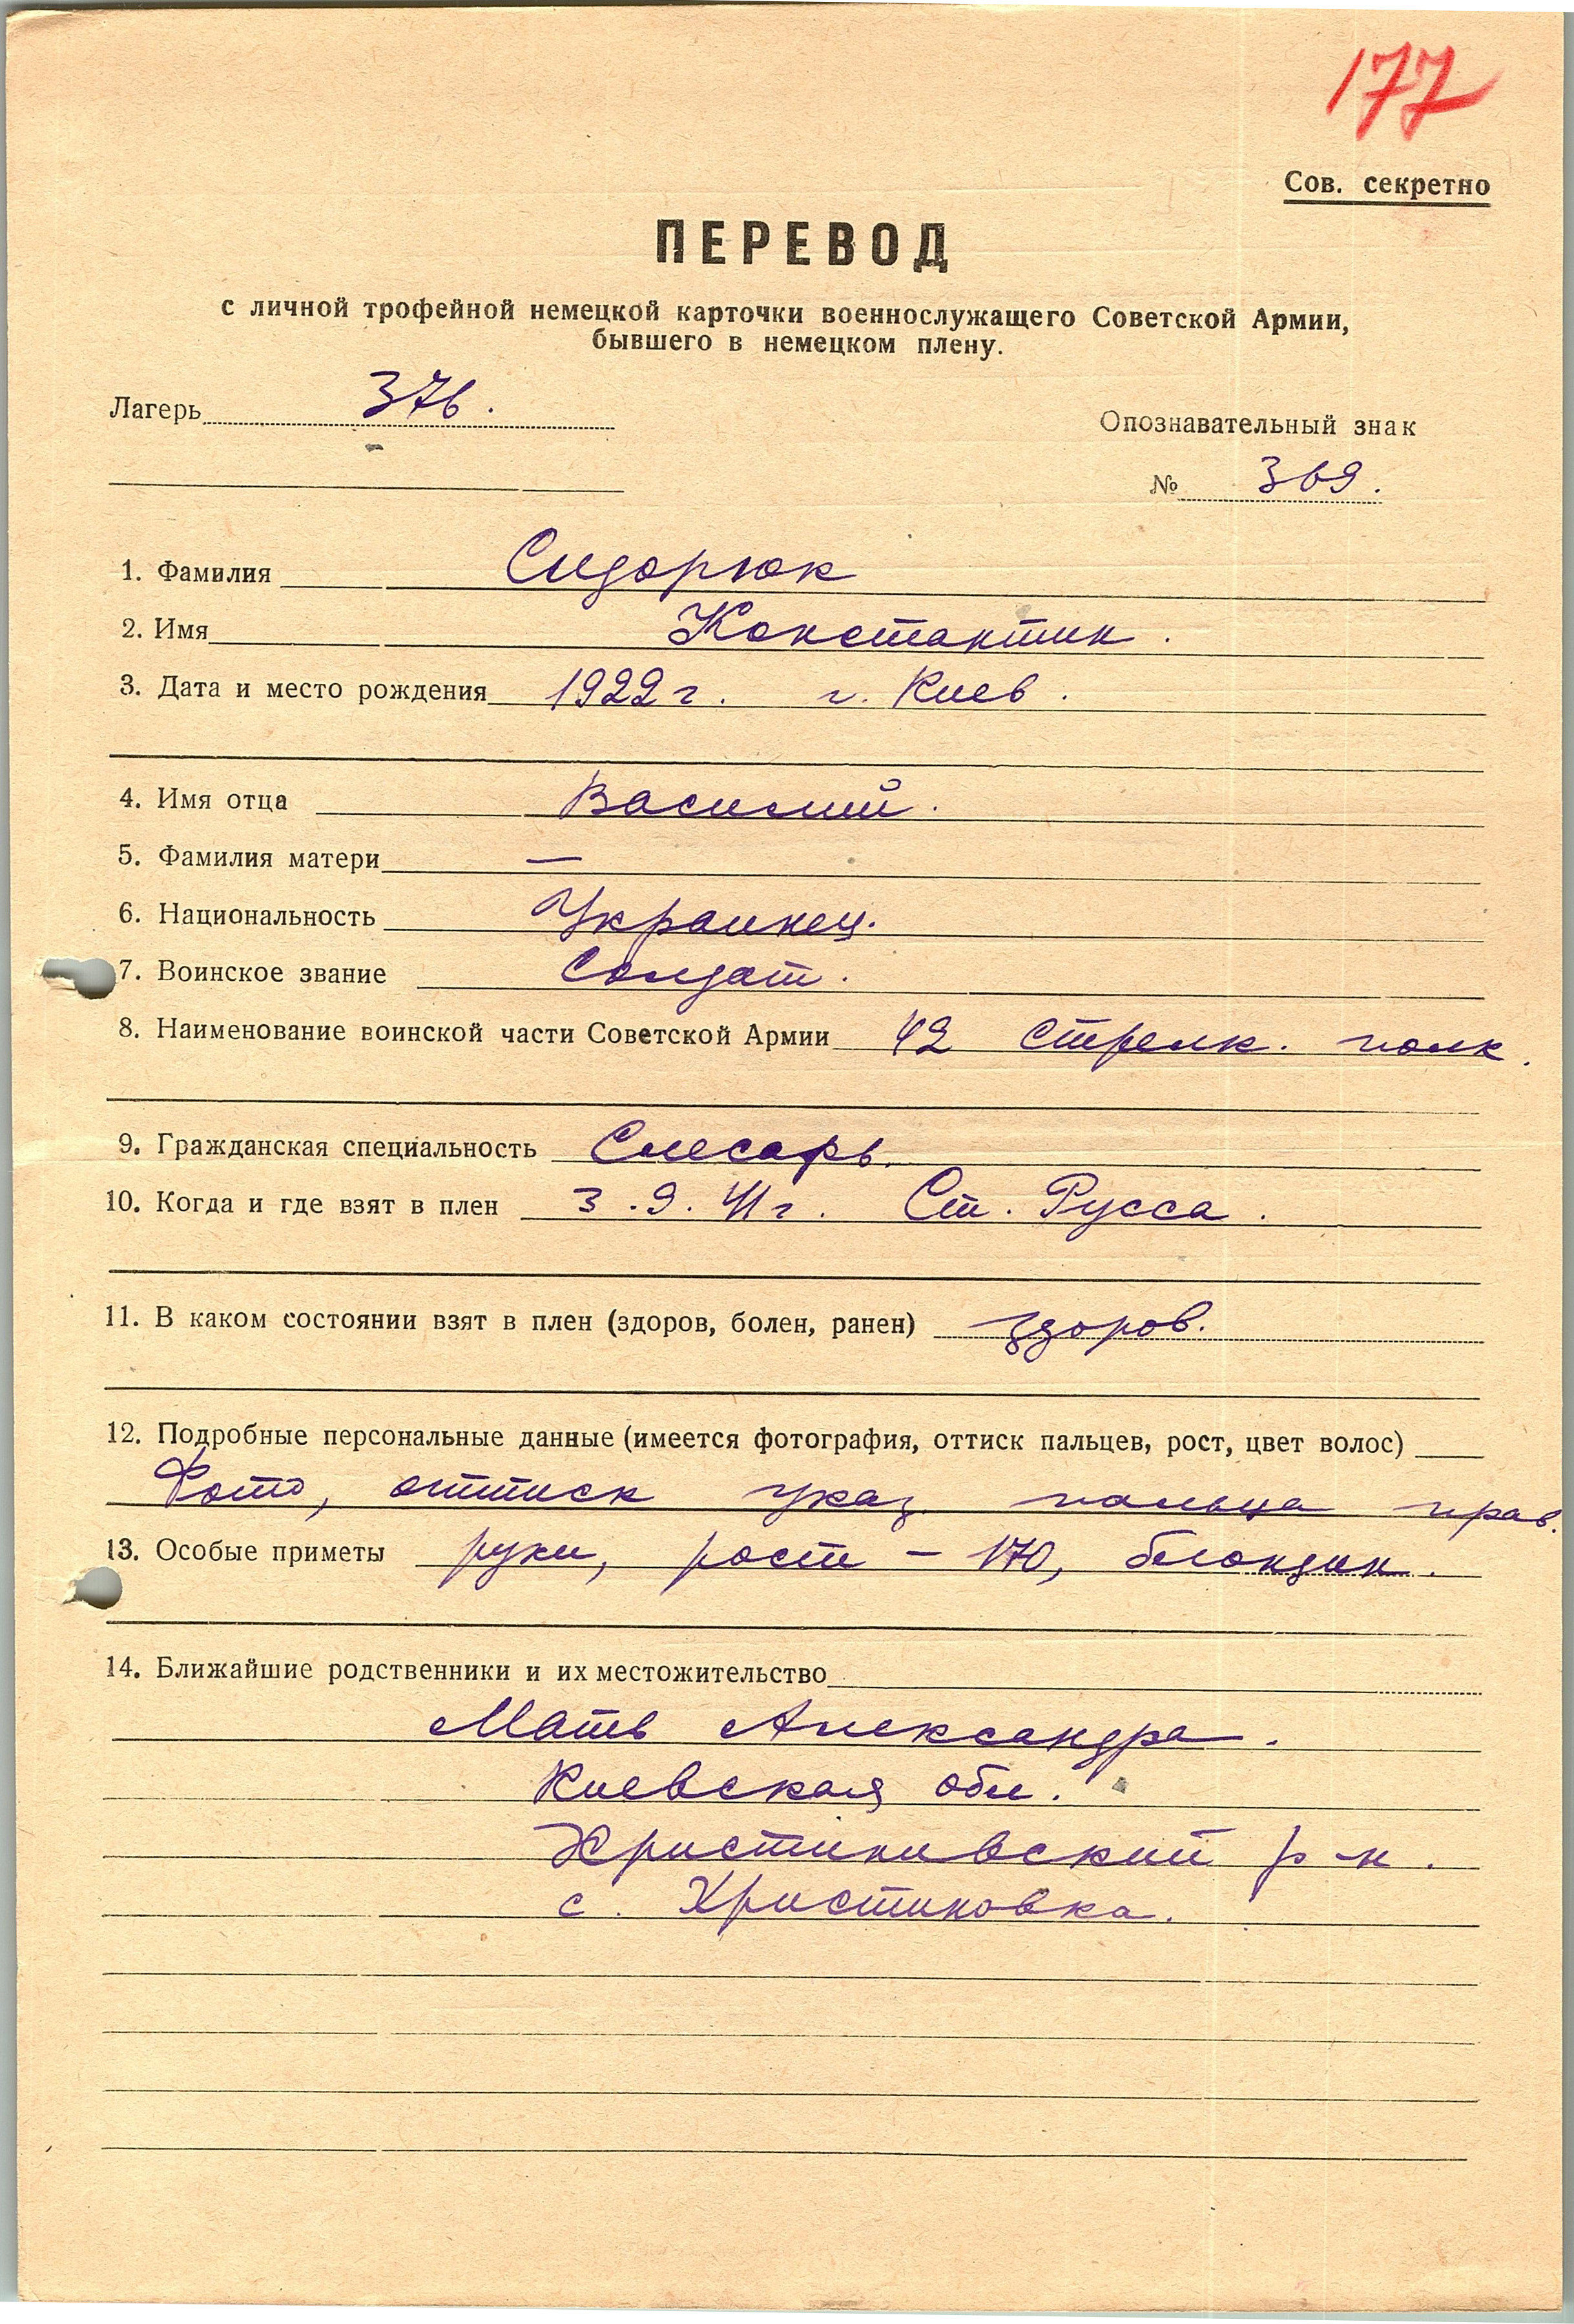 177
Сов. секретно
ПЕРЕВОД
с личной трофейной немецкой карточки военнослужащего Советской Армии,
бывшего в немецком плену.
Лагерь 376.
Опознавательный знак
№ 369.
1. Фамилия Сидорюк
2. Имя Константин.
3. Дата и место рождения 1922 г. г. Киев.
4. Имя отца Василий.
5. Фамилия матери —
6. Национальность Украинец.
7. Воинское звание Солдат.
8. Наименование воинской части Советской Армии 42 стрелк. полк.
9. Гражданская специальность Слесарь.
10. Когда и где взят в плен 3.9.41 г. Ст. Русса.
11. В каком состоянии взят в плен (здоров, болен, ранен) здоров.
12. Подробные персональные данные (имеется фотография, оттиск пальцев, рост, цвет волос)
Фото, оттиск указ. пальца прав.
13. Особые приметы руки, рост – 170, блондин.
14. Ближайшие родственники и их местожительство
Мать Александра.
Киевская обл.
Христиновский р-н.
с. Христиновка.